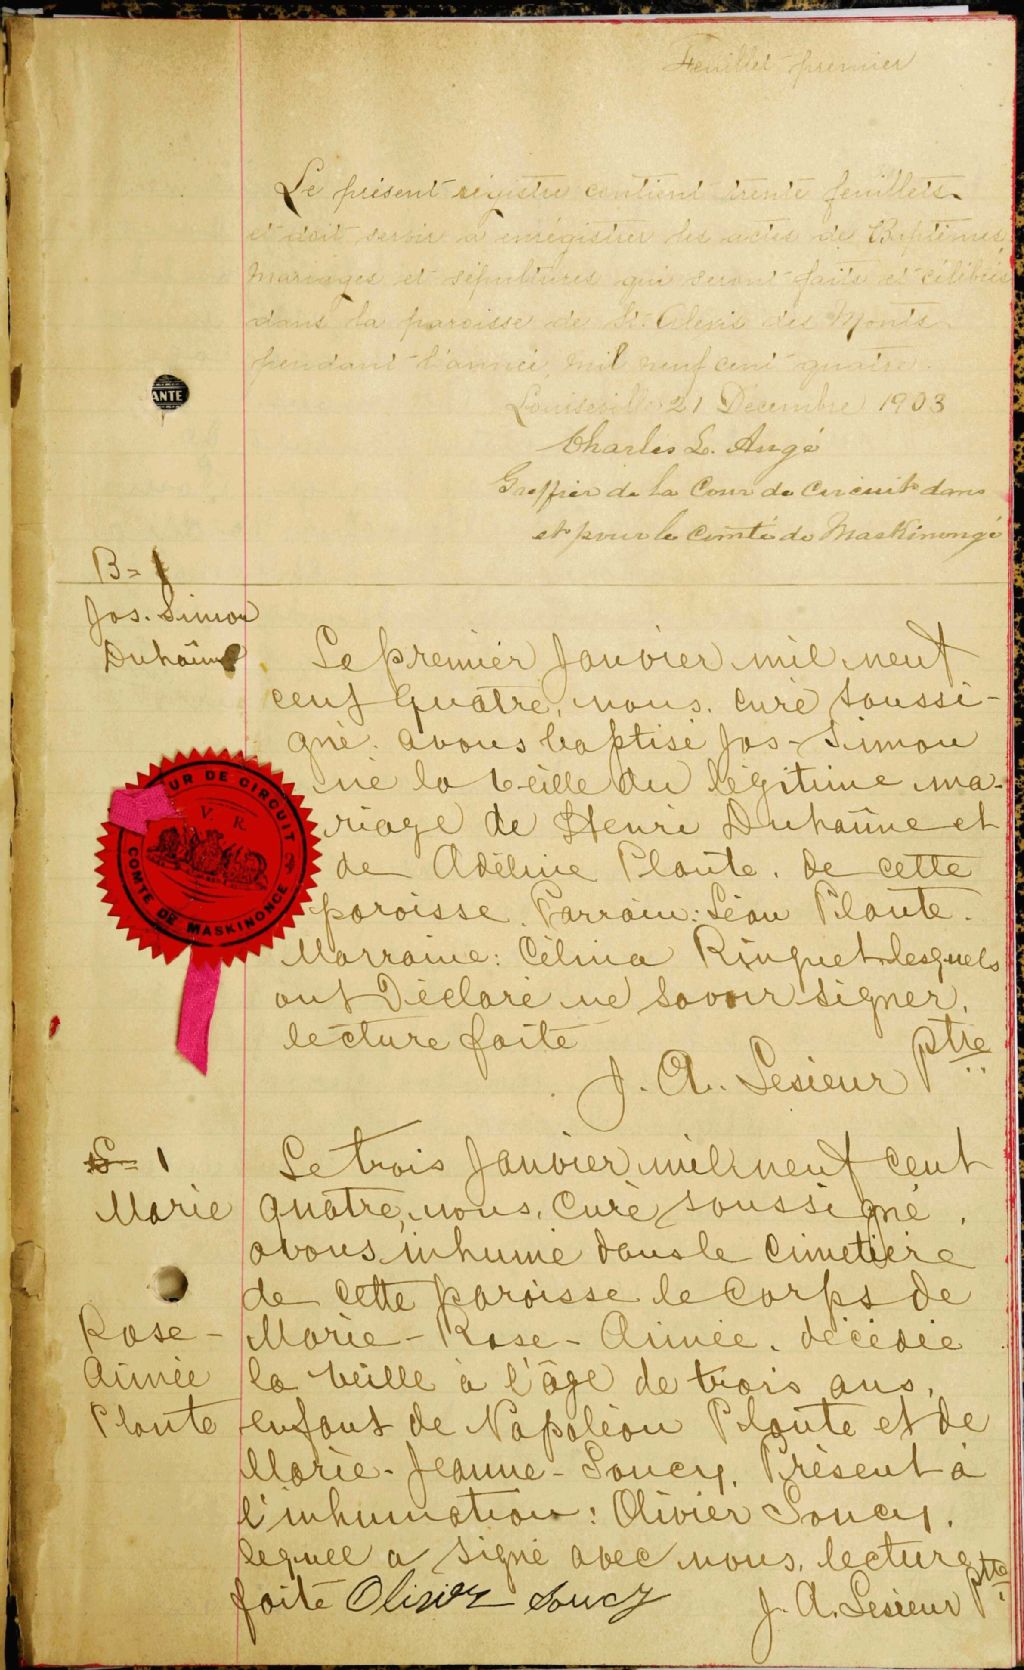 Feuillet premier
Le présent régistre contient trente feuillets
et doit servir à enrégistrer les actes de Baptêmes,
Mariages et sépultures qui seront faits et célébrés
dans la paroisse de St. Alexis des Monts
pendant l'année mil neuf cent quatre.
Louiseville 21 Décembre 1903
Charles L. Angé
Greffier de la Cour de Circuit dans
et pour le Comté de Maskinongé
ANTE
B = 1
Jos. Simon
Duhaîme
Le premier Janvier mil neuf
cent quatre, nous, curé soussi-
gné. avons baptisé Jos-Simon
né la veille du légitime ma-
riage de Henri Duhaîme et
de Adéline Plante. de cette
paroisse. Parrain: Léon Plante.
Marraine: Célina Ringuet lesquels
ont Déclaré ne savoir signer.
lecture faite
J. A. Lesieur Ptre
UR DE CIRCUIT
V. R.
COMTE DE MASKINONGE
S = 1
Marie
Rose-
Aimée
Plante
Le trois Janvier mil neuf cent
quatre, nous, curé soussigné,
avons inhumé dans le cimetière
de cette paroisse le corps de
Marie-Rose-Aimée. décédée
la veille à l'âge de trois ans,
enfant de Napoléon Plante et de
Marie-Jeanne-Soucy. Présent à
l'inhumation: Olivier Soucy.
lequel a signé avec nous. lecture
faite Olivier Soucy
J. A. Lesieur Ptre